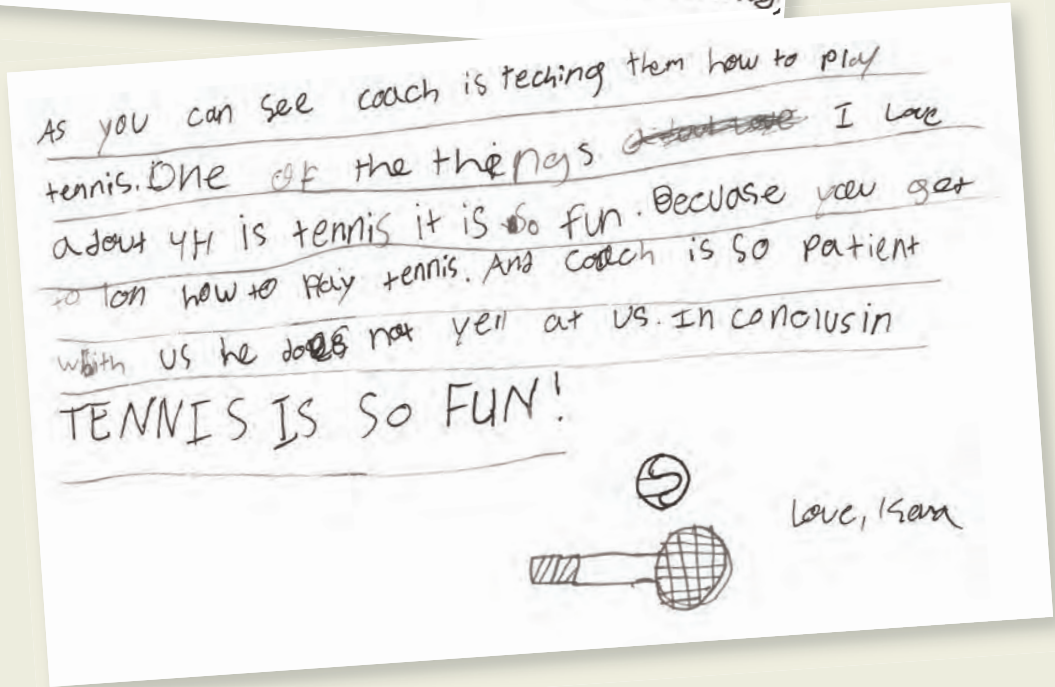 As you can see coach is teching them how to play
tennis. One of the things I Love
adout YH is tennis it is so fun. Becuase you get
to lon how to Play tennis. And coach is so patient
whith us he does not yell at us. In conclusin
TENNIS IS SO FUN!
Love,